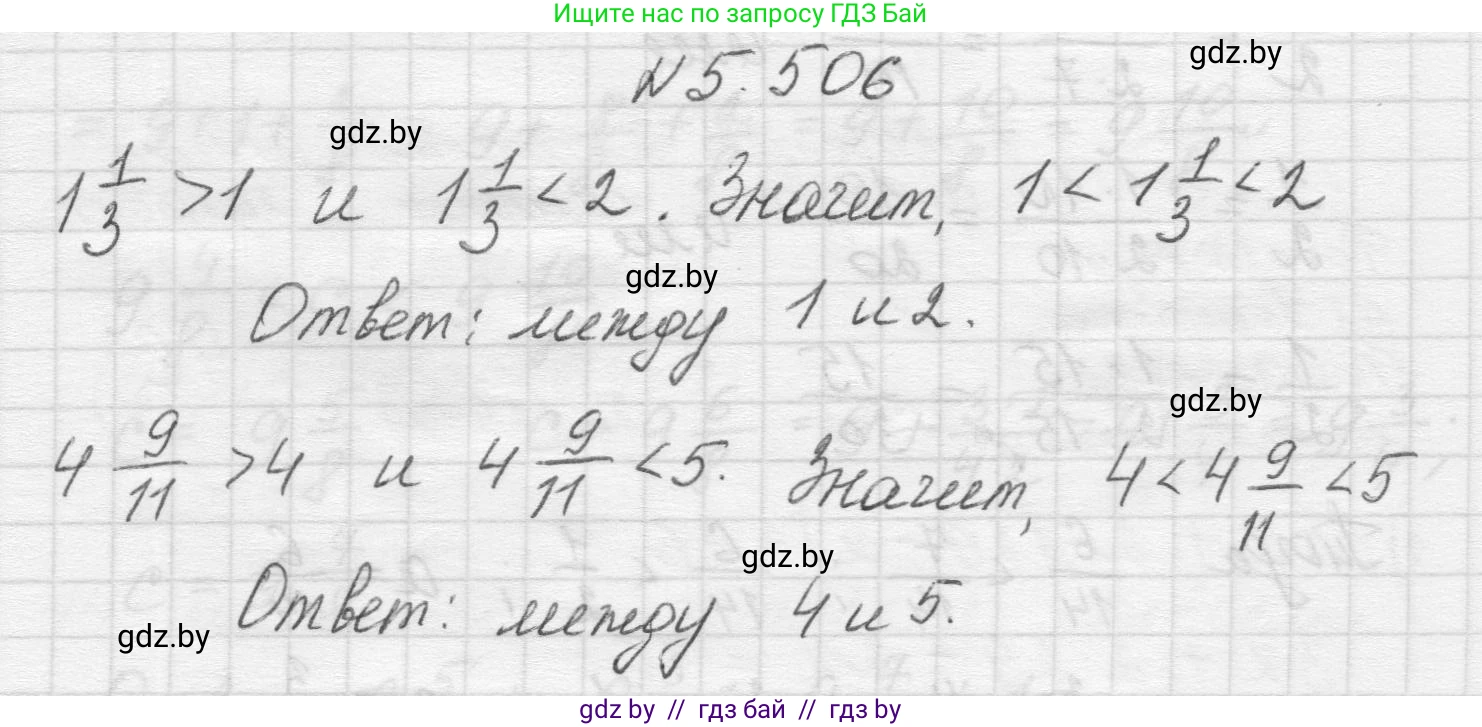 Ищите нас по запросу ГДЗ Бай
gdz.by
№5.506
gdz.by
1 1/3 > 1 и 1 1/3 < 2. Значит, 1 < 1 1/3 < 2
gdz.by
Ответ: между 1 и 2.
gdz.by
4 9/11 > 4 и 4 9/11 < 5. Значит, 4 < 4 9/11 < 5
gdz.by
Ответ: между 4 и 5.
gdz.by
gdz by // гдз бай // гдз by